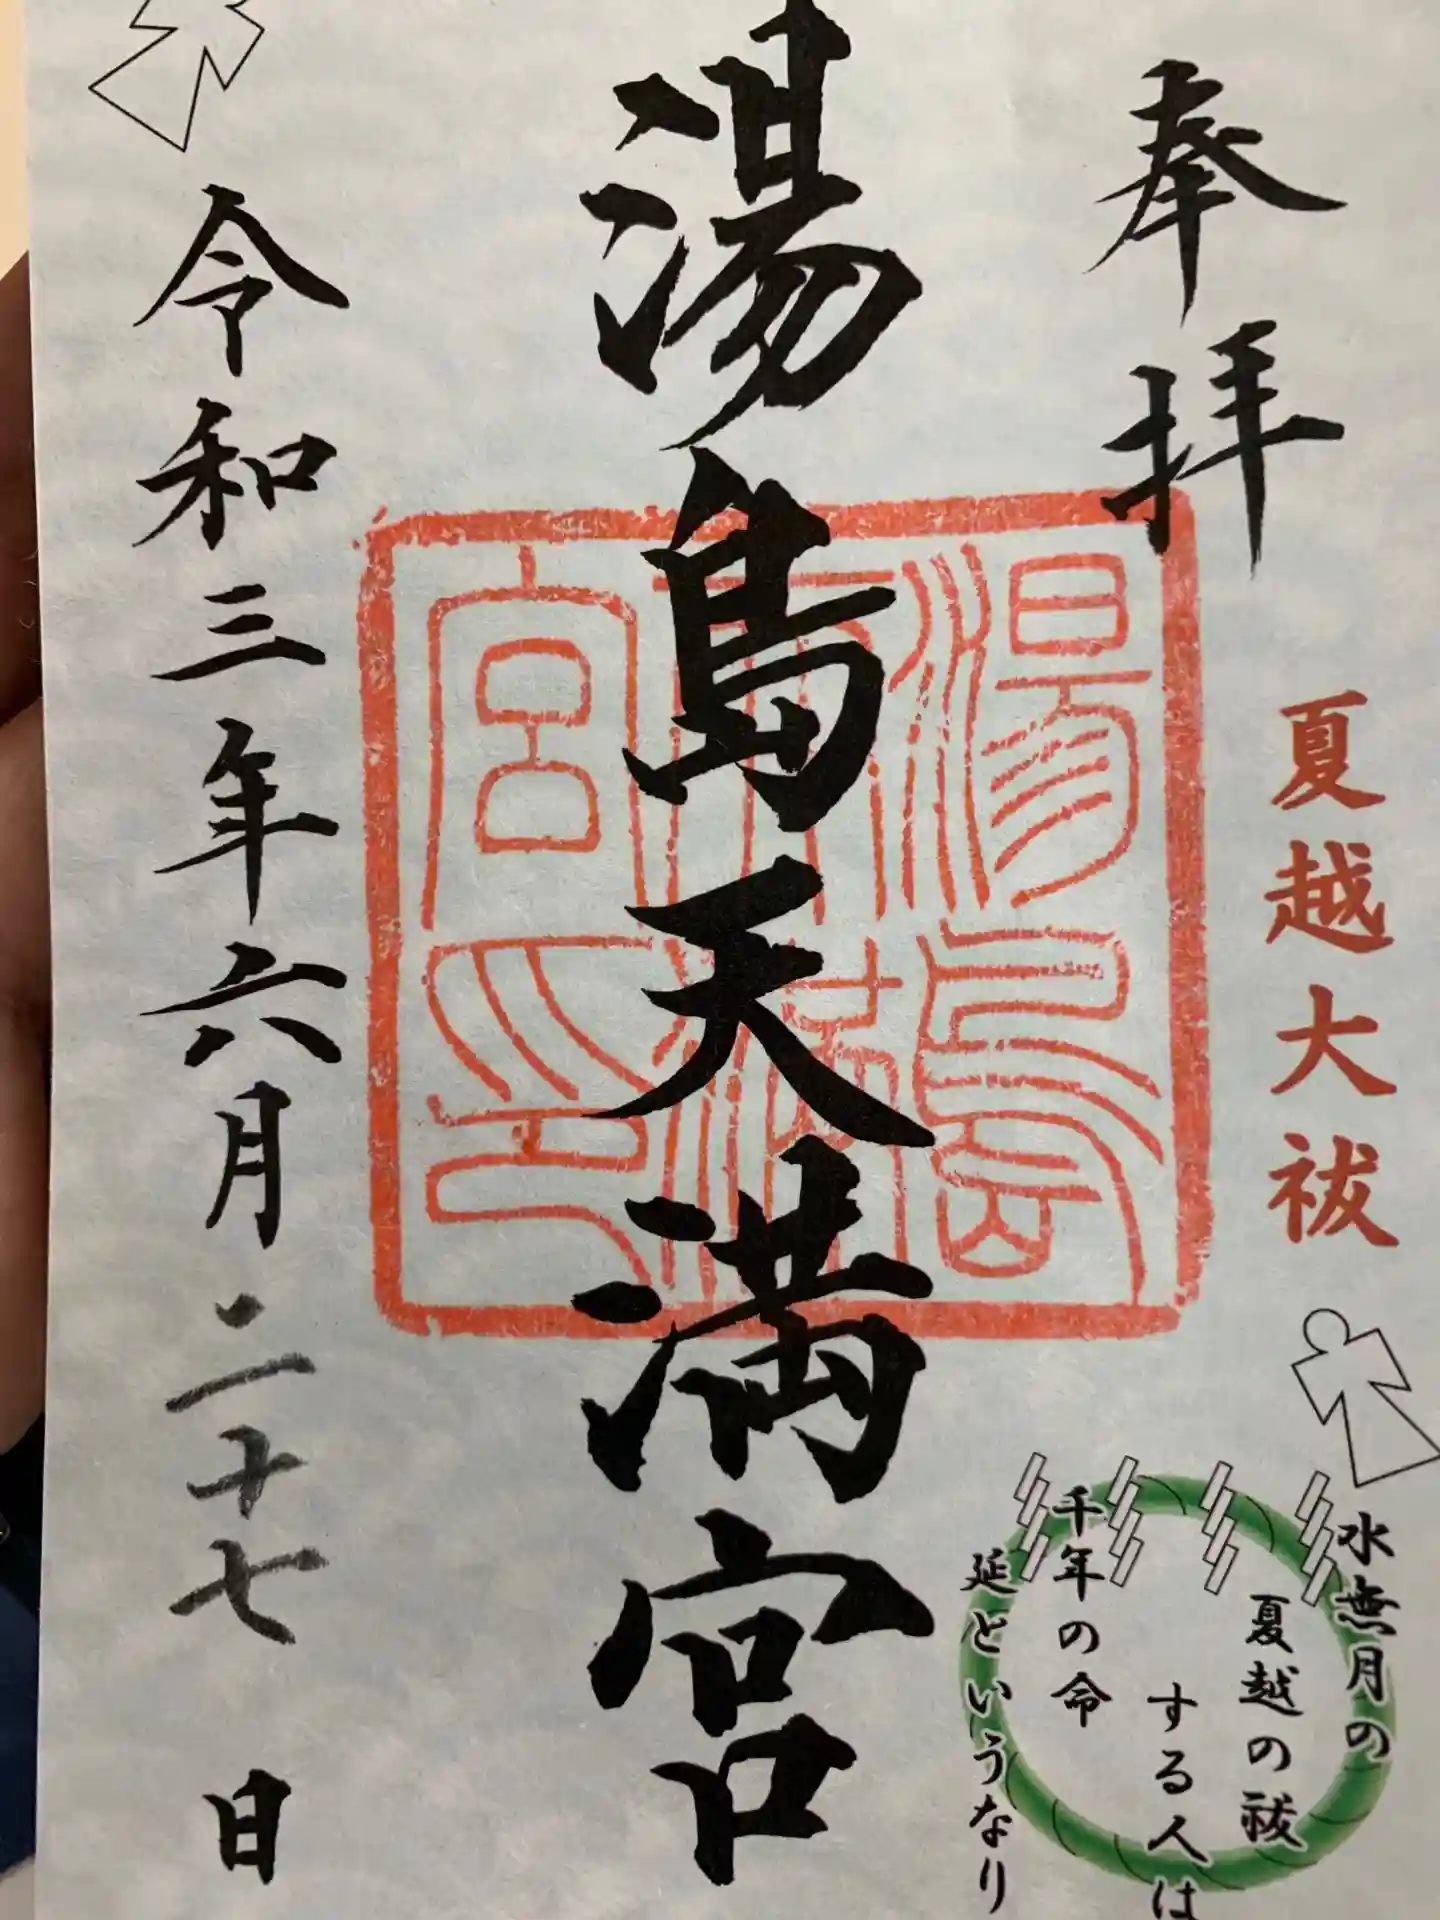 奉拝
夏越大祓
水無月の
夏越の祓
する人は
千年の命
延というなり
湯島天満宮
湯島
天神
宮印
令和三年六月二十七日